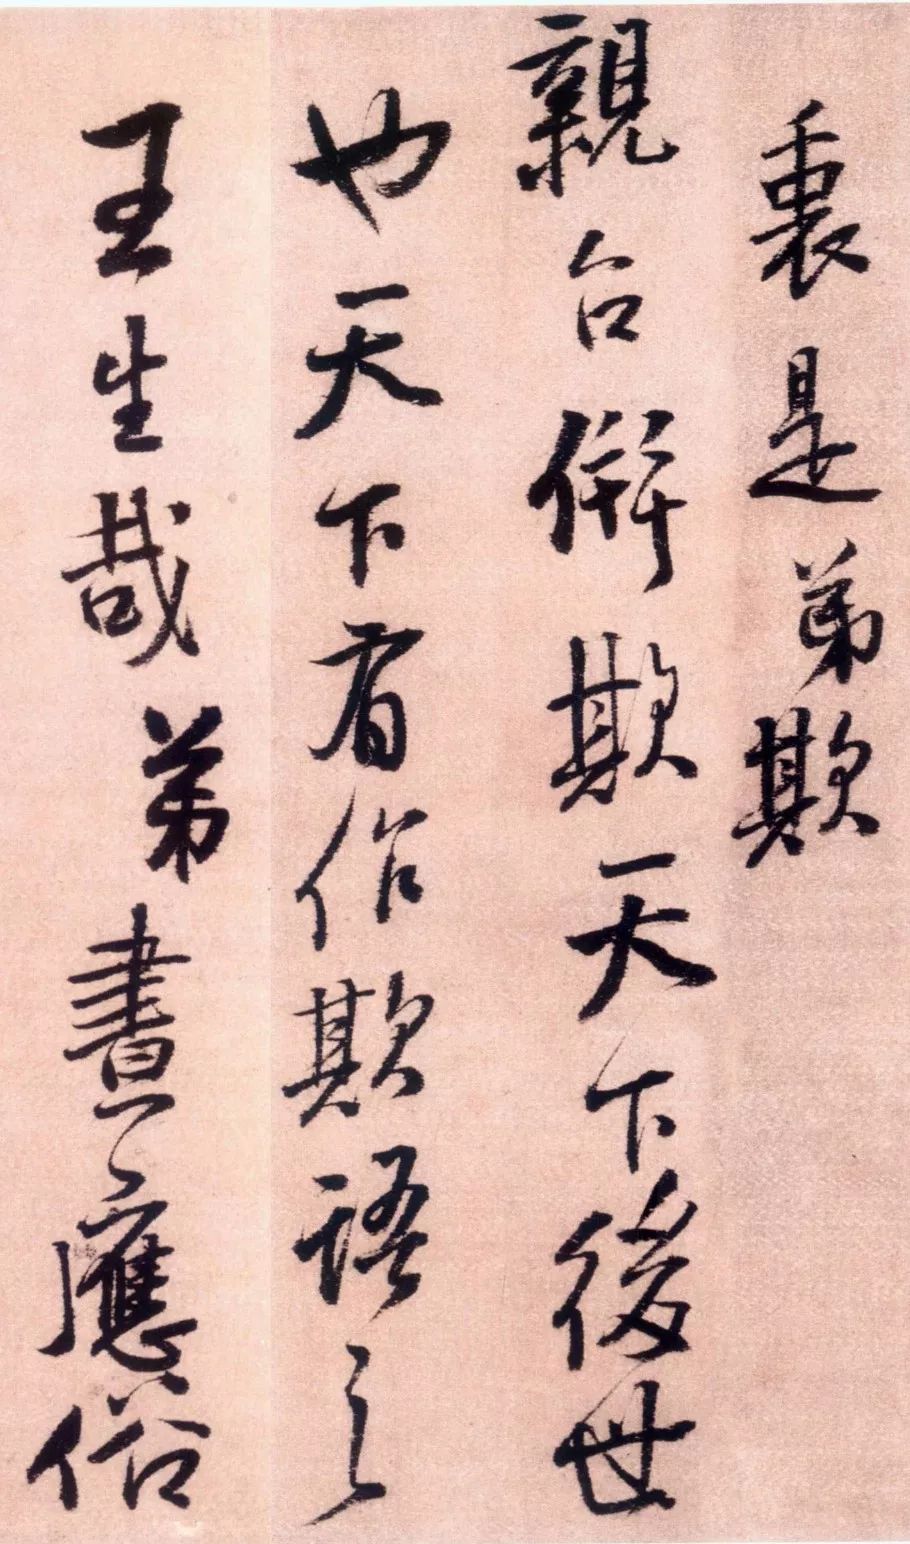 裏是弟欺
親台併欺天下後世
也天下有作欺語之
王生哉弟畫應俗